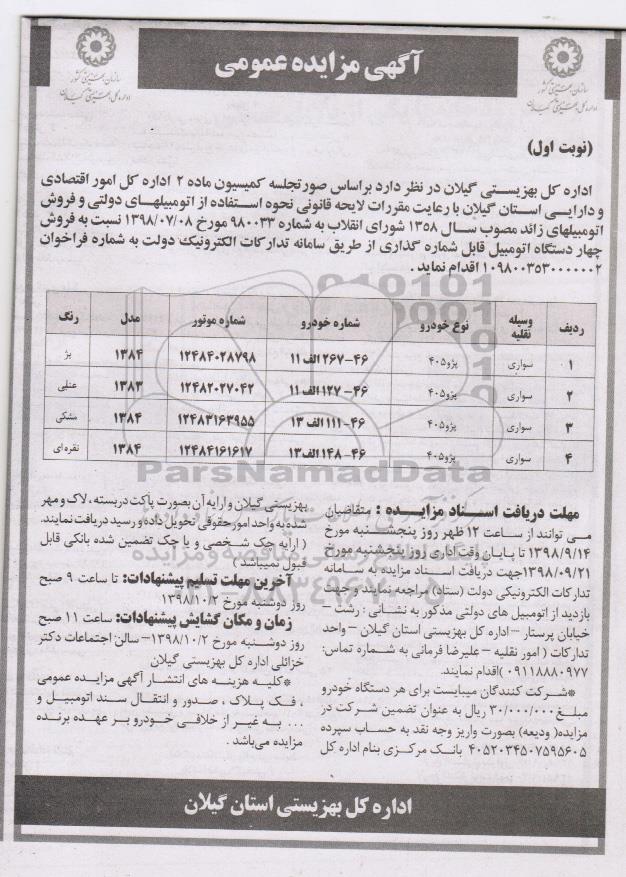 آگهی مزایده عمومی
سازمان بهزیستی کشور
اداره کل بهزیستی گیلان
سازمان بهزیستی کشور
اداره کل بهزیستی گیلان
(نوبت اول)
اداره کل بهزیستی گیلان در نظر دارد براساس صورتجلسه کمیسیون ماده ۲ اداره کل امور اقتصادی
و دارایی استان گیلان با رعایت مقررات لایحه قانونی نحوه استفاده از اتومبیلهای دولتی و فروش
اتومبیلهای زائد مصوب سال ۱۳۵۸ شورای انقلاب به شماره ۹۸۰۰۳۳ مورخ ۱۳۹۸/۰۷/۰۸ نسبت به فروش
چهار دستگاه اتومبیل قابل شماره گذاری از طریق سامانه تدارکات الکترونیک دولت به شماره فراخوان
۱۰۹۸۰۰۳۵۳۰۰۰۰۰۰۲ اقدام نماید .
ردیف وسیله نقلیه نوع خودرو شماره خودرو شماره موتور مدل رنگ
۱ سواری پژو۴۰۵ ۴۶-۲۶۷ الف ۱۱ ۱۲۴۸۴۰۲۸۷۹۸ ۱۳۸۴ بژ
۲ سواری پژو۴۰۵ ۴۶-۱۲۷ الف ۱۱ ۱۲۴۸۲۰۲۷۰۴۲ ۱۳۸۳ عنابی
۳ سواری پژو۴۰۵ ۴۶-۱۱۱ الف ۱۳ ۱۲۴۸۳۱۶۳۹۵۵ ۱۳۸۴ مشکی
۴ سواری پژو۴۰۵ ۴۶-۱۴۸ الف ۱۳ ۱۲۴۸۴۱۶۱۶۱۷ ۱۳۸۴ نقره‌ای
ParsNamadData
مهلت دریافت اسناد مزایده : متقاضیان
می توانند از ساعت ۱۲ ظهر روز پنجشنبه مورخ
۱۳۹۸/۹/۱۴ تا پایان وقت اداری روز پنجشنبه مورخ
۱۳۹۸/۰۹/۲۱ جهت دریافت اسناد مزایده به سامانه
تدارکات الکترونیکی دولت (ستاد) مراجعه نمایند و جهت
بازدید از اتومبیل های دولتی مذکور به نشانی : رشت –
خیابان پرستار – اداره کل بهزیستی استان گیلان – واحد
تدارکات ( امور نقلیه – علیرضا فرمانی به شماره تماس:
۰۹۱۱۸۸۸۰۹۷۷ )اقدام نمایند.
*شرکت کنندگان میبایست برای هر دستگاه خودرو
مبلغ ۳۰/۰۰۰/۰۰۰ ریال به عنوان تضمین شرکت در
مزایده( ودیعه) بصورت واریز وجه نقد به حساب سپرده
۴۰۵۲۰۳۴۵۰۷۵۹۵۶۰۵ بانک مرکزی بنام اداره کل
بهزیستی گیلان و ارایه آن بصورت پاکت دربسته ، لاک و مهر
شده به واحد امور حقوقی تحویل داده و رسید دریافت نمایند.
( ارایه چک شخصی و یا چک تضمین شده بانکی قابل
قبول نمیباشد )
آخرین مهلت تسلیم پیشنهادات: تا ساعت ۹ صبح
روز دوشنبه مورخ ۱۳۹۸/۱۰/۲
زمان و مکان گشایش پیشنهادات: ساعت ۱۱ صبح
روز دوشنبه مورخ ۱۳۹۸/۱۰/۲– سالن اجتماعات دکتر
خزائلی اداره کل بهزیستی گیلان
*کلیه هزینه های انتشار آگهی مزایده عمومی
، فک پلاک ، صدور و انتقال سند اتومبیل و
... به غیر از خلافی خودرو بر عهده برنده
مزایده می‌باشد .
اداره کل بهزیستی استان گیلان